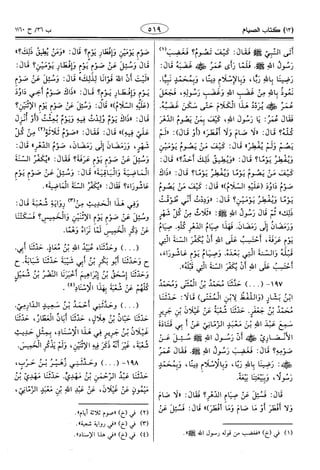 (١٣) كتاب الصيام
٥١٩
ب ٣٦/ ح ١١٦٠
أتى النبيّ ﷺ فقال: كيف تصوم؟ فغضب(١)
رسول الله ﷺ. فلمّا رأى عمر ﷺ غضبه قال:
رضينا بالله ربّا، وبالإسلام دينا، وبمحمد نبيّا.
نعوذ بالله من غضب الله وغضب رسوله. فجعل
عمر ﷺ يردّد هذا الكلام حتى سكن غضبه.
فقال عمر: يا رسول الله، كيف بمن يصوم الدهر
كلّه؟ قال: «لا صام ولا أفطر» (أو قال): «لم
يصم ولم يفطر» قال: كيف من يصوم يومين
ويفطر يوما؟ قال: «ويطيق ذلك أحد؟» قال:
كيف من يصوم يوما ويفطر يوما؟ قال: «ذاك
صوم داود (عليه السلام)» قال: كيف من يصوم
يوما ويفطر يومين؟ قال: «وددت أني طوّقت
ذلك» ثم قال رسول الله ﷺ: «ثلاث من كل شهر
ورمضان إلى رمضان. فهذا صيام الدهر كلّه. صيام
يوم عرفة، أحتسب على الله أن يكفّر السنة التي
قبله والسنة التي بعده. وصيام يوم عاشوراء،
أحتسب على الله أن يكفّر السنة التي قبله».
١٩٧- (...) حدثنا محمد بن المثنى ومحمد
ابن بشار (واللفظ لابن المثنى) قالا: حدثنا
محمد بن جعفر. حدثنا شعبة عن غيلان بن جرير
سمع عبد الله بن معبد الزماني عن أبي قتادة
الأنصاري ﷺ أن رسول الله ﷺ سئل عن
صومه؟ قال: فغضب رسول الله ﷺ. فقال عمر
ﷺ: رضينا بالله ربّا، وبالإسلام دينا، وبمحمد
رسولا، وببيعتنا بيعة.
قال: فسئل عن صيام الدهر؟ فقال: «لا صام
ولا أفطر (أو ما صام وما أفطر)» قال: فسئل عن
(١) في (خ) «فغضب من قوله رسول الله ﷺ».
صوم يومين وإفطار يوم؟ قال: «ومن يطيق ذلك؟»
قال: وسئل عن صوم يوم وإفطار يومين؟ قال:
«ليت أن الله قوّانا لذلك» قال: وسئل عن صوم
يوم وإفطار يوم؟ قال: «ذاك صوم أخي داود
(عليه السلام)» قال: وسئل عن صوم يوم الاثنين؟
قال: «ذاك يوم ولدت فيه ويوم بعثت (أو أنزل
عليّ فيه)» قال: فقال: «صوم ثلاثة(٢) من كل
شهر، ورمضان إلى رمضان، صوم الدهر» قال:
وسئل عن صوم يوم عرفة؟ فقال: «يكفّر السنة
الماضية والباقية» قال: وسئل عن صوم يوم
عاشوراء؟ فقال: «يكفّر السنة الماضية».
وفي هذا الحديث من(٣) رواية شعبة قال:
وسئل عن صوم يوم الاثنين والخميس؟ فسكتنا
عن ذكر الخميس لمّا نراه وهما.
(...) وحدثناه عبيد الله بن معاذ. حدثنا أبي.
ح وحدثنا أبو بكر بن أبي شيبة. حدثنا شبابة. ح
وحدثنا إسحق بن إبراهيم. أخبرنا النضر بن شميل
كلّهم عن شعبة بهذا الإسناد(٤).
(...) وحدثني أحمد بن سعيد الدارمي.
حدثنا حبان بن هلال. حدثنا أبان العطار. حدثنا
غيلان بن جرير في هذا الإسناد، بمثل حديث
شعبة، غير أنه ذكر فيه الاثنين، ولم يذكر الخميس.
١٩٨- (...) وحدثني زهير بن حرب.
حدثنا عبد الرحمن بن مهدي. حدثنا مهدي بن
ميمون عن غيلان، عن عبد الله بن معبد الزماني،
(٢) في (خ) «صوم ثلاثة أيام».
(٣) في (خ) «في رواية شعبة».
(٤) في (خ) «في هذا الإسناد».